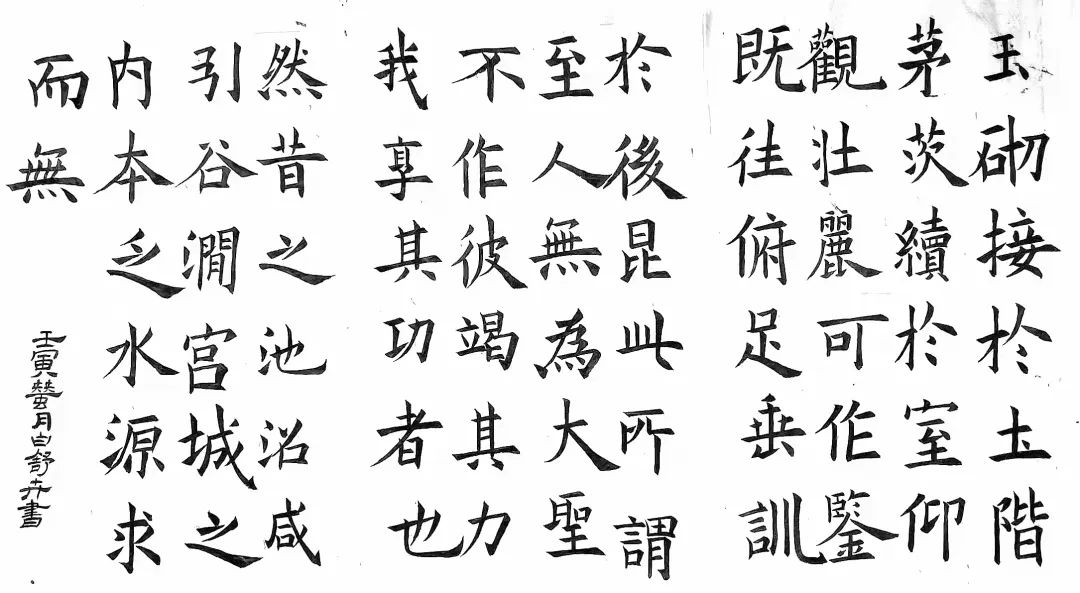 玉砌接於土階
茅茨續於室仰
觀壮麗可作鑒
既往俯足垂訓
於後昆此所謂
至人無為大聖
不作彼竭其力
我享其功者也
然昔之池沼咸
引谷澗宫城之
内本乏水源求
而無
壬寅螢月白舒卉書